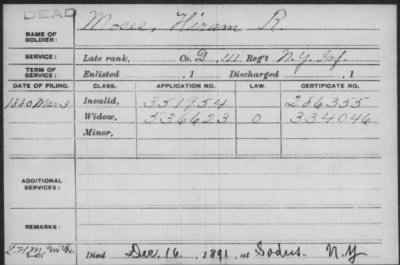 DEAD
NAME OF SOLDIER: Moses, Hiram R.
SERVICE: Late rank, Co. D, 111 Reg't N.Y. Inf.
TERM OF SERVICE: Enlisted , 1 Discharged , 1
DATE OF FILING. CLASS. APPLICATION NO. LAW. CERTIFICATE NO.
1880 Mar 3 Invalid, 351954 286355
Widow, 536623 0 334046
Minor,
ADDITIONAL SERVICES:
REMARKS:
Died Dec. 16, 1891, at Sodus. N.Y